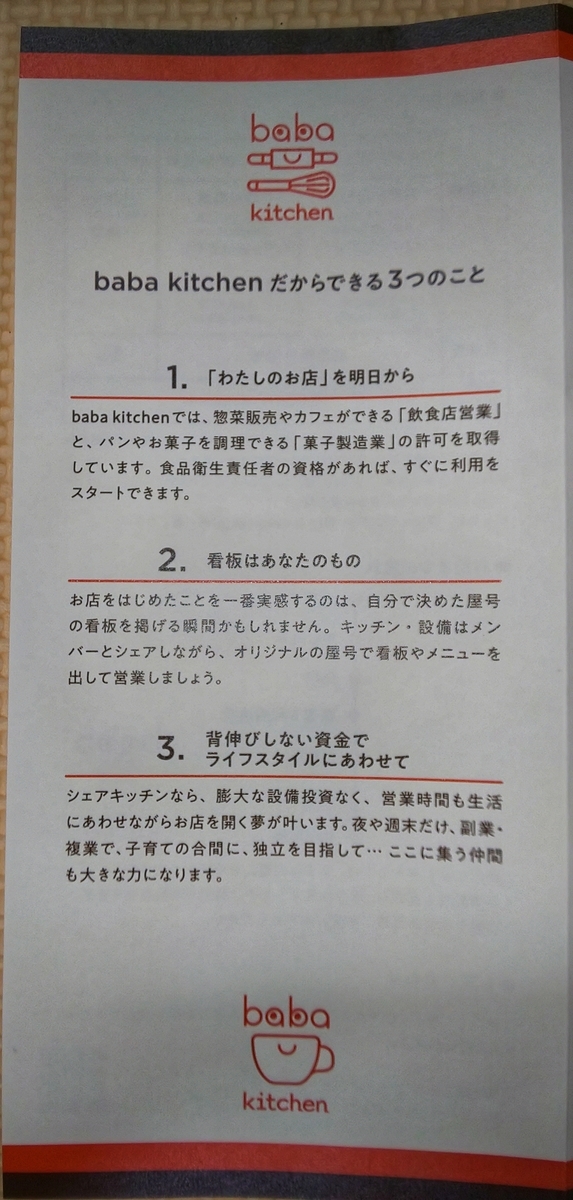 baba
kitchen
baba kitchenだからできる3つのこと
1. 「わたしのお店」を明日から
baba kitchenでは、惣菜販売やカフェができる「飲食店営業」
と、パンやお菓子を調理できる「菓子製造業」の許可を取得
しています。食品衛生責任者の資格があれば、すぐに利用を
スタートできます。
2. 看板はあなたのもの
お店をはじめたことを一番実感するのは、自分で決めた屋号
の看板を掲げる瞬間かもしれません。キッチン・設備はメン
バーとシェアしながら、オリジナルの屋号で看板やメニューを
出して営業しましょう。
3. 背伸びしない資金で
ライフスタイルにあわせて
シェアキッチンなら、膨大な設備投資なく、営業時間も生活
にあわせながらお店を開く夢が叶います。夜や週末だけ、副業・
複業で、子育ての合間に、独立を目指して… ここに集う仲間
も大きな力になります。
baba
kitchen